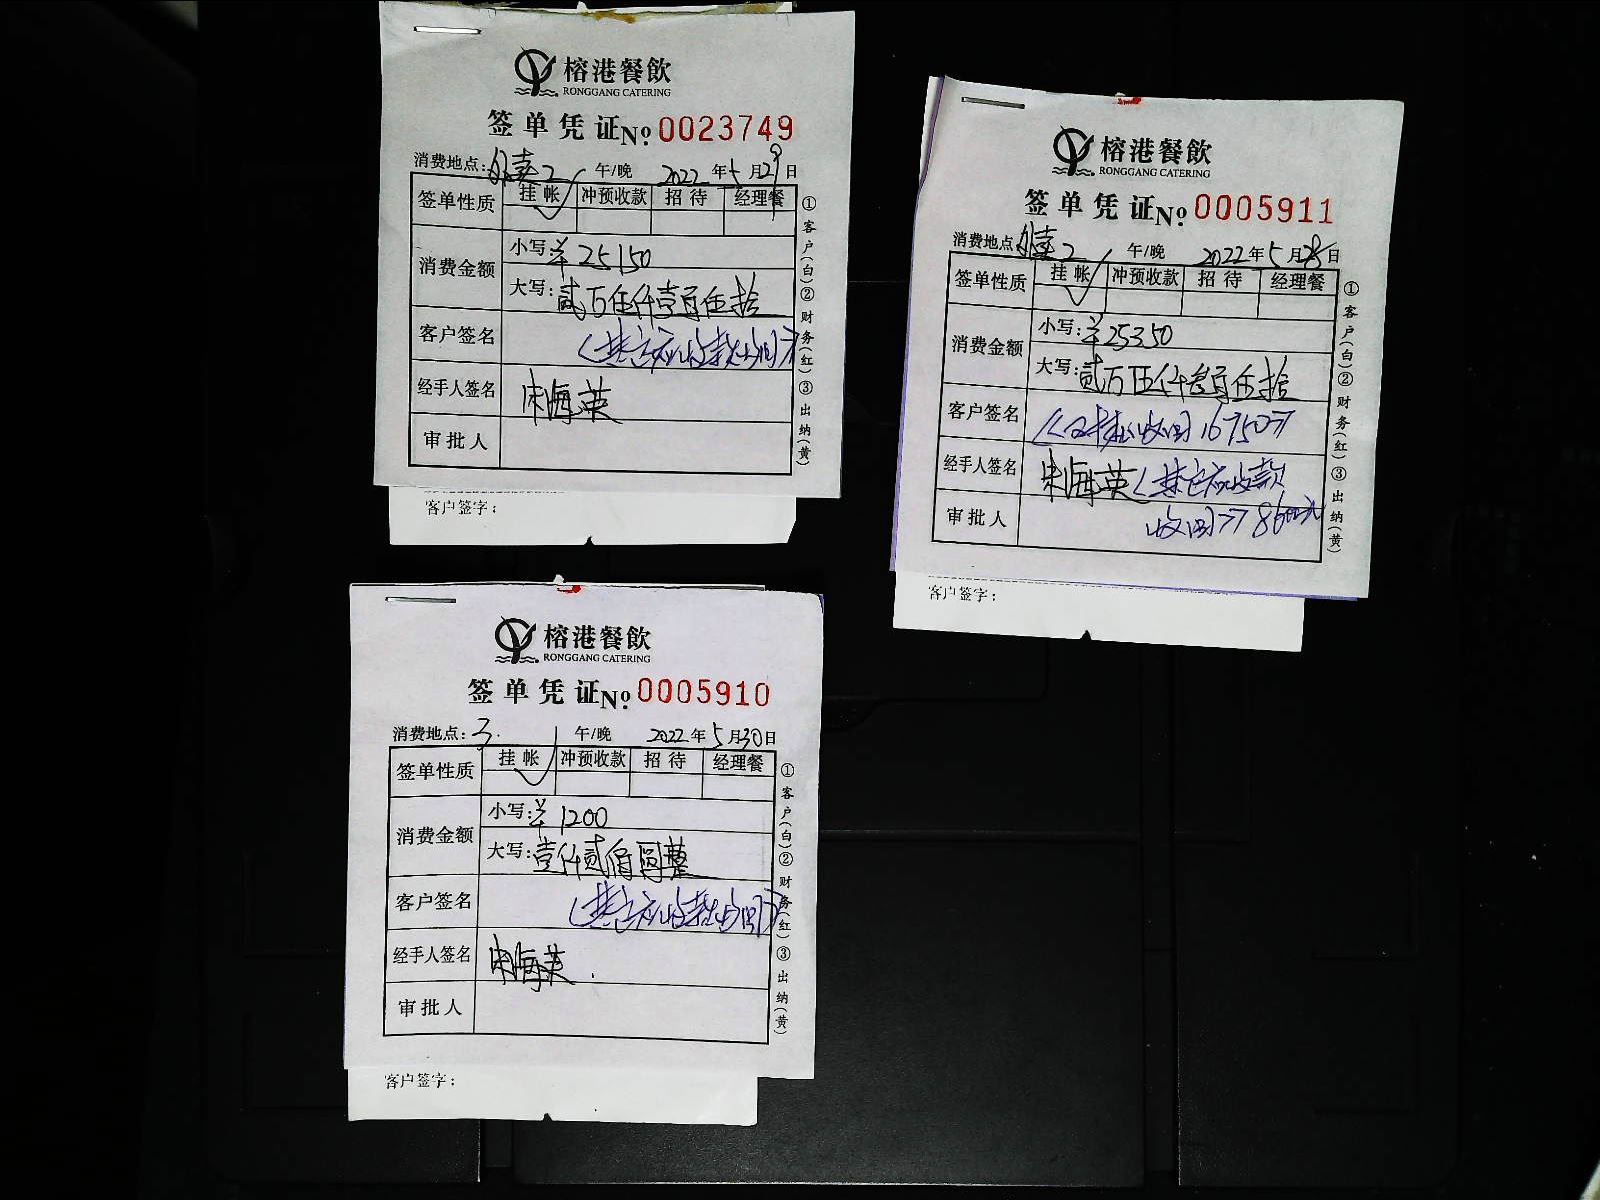 榕港餐飲
RONGGANG CATERING
签单凭证No. 0023749
消费地点：外卖2 午/晚 2022年5月29日
签单性质 挂帐 冲预收款 招待 经理餐
消费金额 小写：￥25150
大写：贰万伍仟壹百伍拾
客户签名 (其它应收款收回)
经手人签名 宋海英
审批人
①客户(白)②财务(红)③出纳(黄)
客户签字：
榕港餐飲
RONGGANG CATERING
签单凭证No. 0005911
消费地点 外卖2 午/晚 2022年5月28日
签单性质 挂帐 冲预收款 招待 经理餐
消费金额 小写：￥25350
大写：贰万伍仟叁百伍拾
客户签名 16750元
经手人签名 宋海英 (其它应收款
审批人 收回) 8600元
①客户(白)②财务(红)③出纳(黄)
客户签字：
榕港餐飲
RONGGANG CATERING
签单凭证No. 0005910
消费地点：3. 午/晚 2022年5月30日
签单性质 挂帐 冲预收款 招待 经理餐
消费金额 小写：￥1200
大写：壹仟贰佰圆整
客户签名 (其它应收款收回)
经手人签名 宋海英
审批人
①客户(白)②财务(红)③出纳(黄)
客户签字：